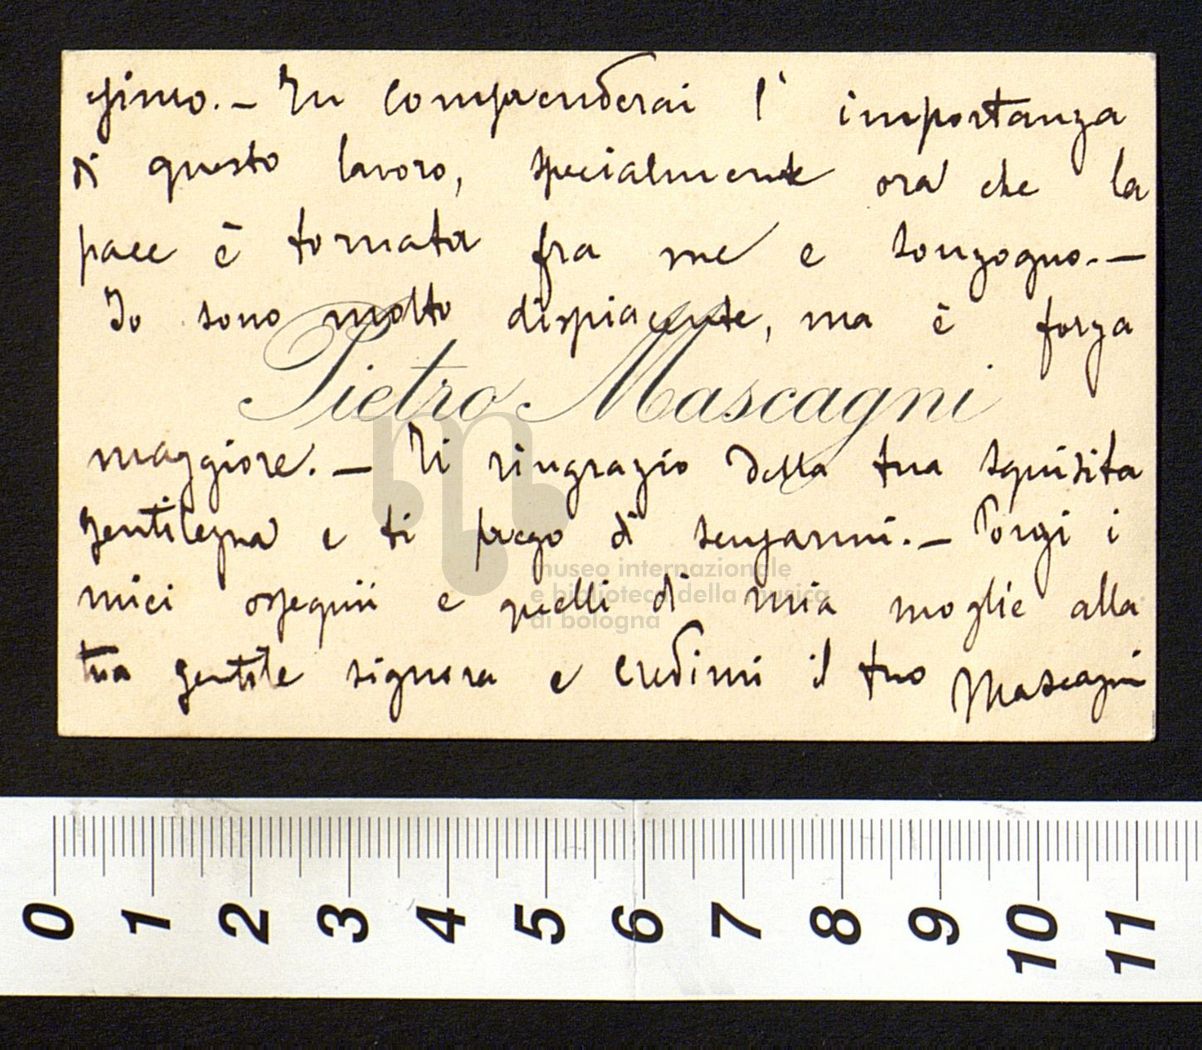 simo. — Tu comprenderai l'importanza
di questo lavoro, specialmente ora che la
pace è tornata fra me e Sonzogno. —
Io sono molto dispiacente, ma è forza
Pietro Mascagni
maggiore. — Ti ringrazio della tua squisita
gentilezza e ti prego di scusarmi. — Porgi i
miei ossequii e quelli di mia moglie alla
tua gentile signora e credimi il tuo Mascagni
museo internazionale
e biblioteca della musica
di bologna
0 1 2 3 4 5 6 7 8 9 10 11